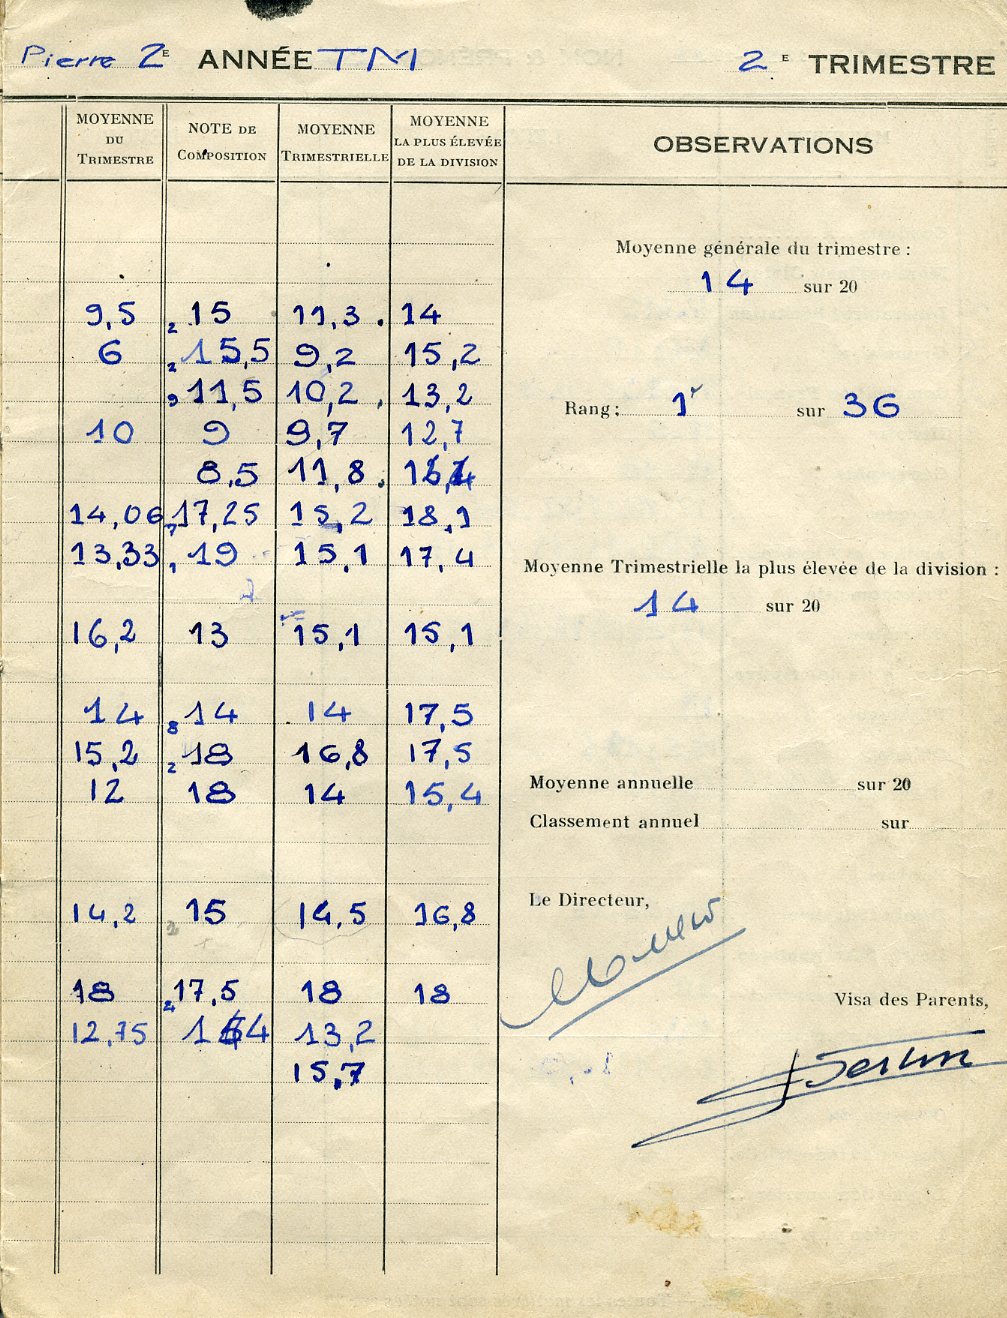 Pierre 2E ANNÉE TM 2 E TRIMESTRE
MOYENNE DU TRIMESTRE NOTE DE COMPOSITION MOYENNE TRIMESTRIELLE MOYENNE LA PLUS ÉLEVÉE DE LA DIVISION OBSERVATIONS
Moyenne générale du trimestre :
14 sur 20
9,5 2 15 11,3 . 14
6 2 15,5 9,2 15,2
9 11,5 10,2 , 13,2
Rang : 1r sur 36
10 9 9,7 12,7
8,5 11,8 .
14,06 7 17,25 15,2 18,1
13,33 1 19 15,1 17,4
Moyenne Trimestrielle la plus élevée de la division :
14 sur 20
16,2 13 15,1 15,1
14 8 14 14 17,5
15,2 2 18 16,8 17,5
12 18 14 15,4
Moyenne annuelle sur 20
Classement annuel sur
Le Directeur,
14,2 2 15 14,5 16,8
18 2 17,5 18 18
Visa des Parents,
12,75 13,2
15,7